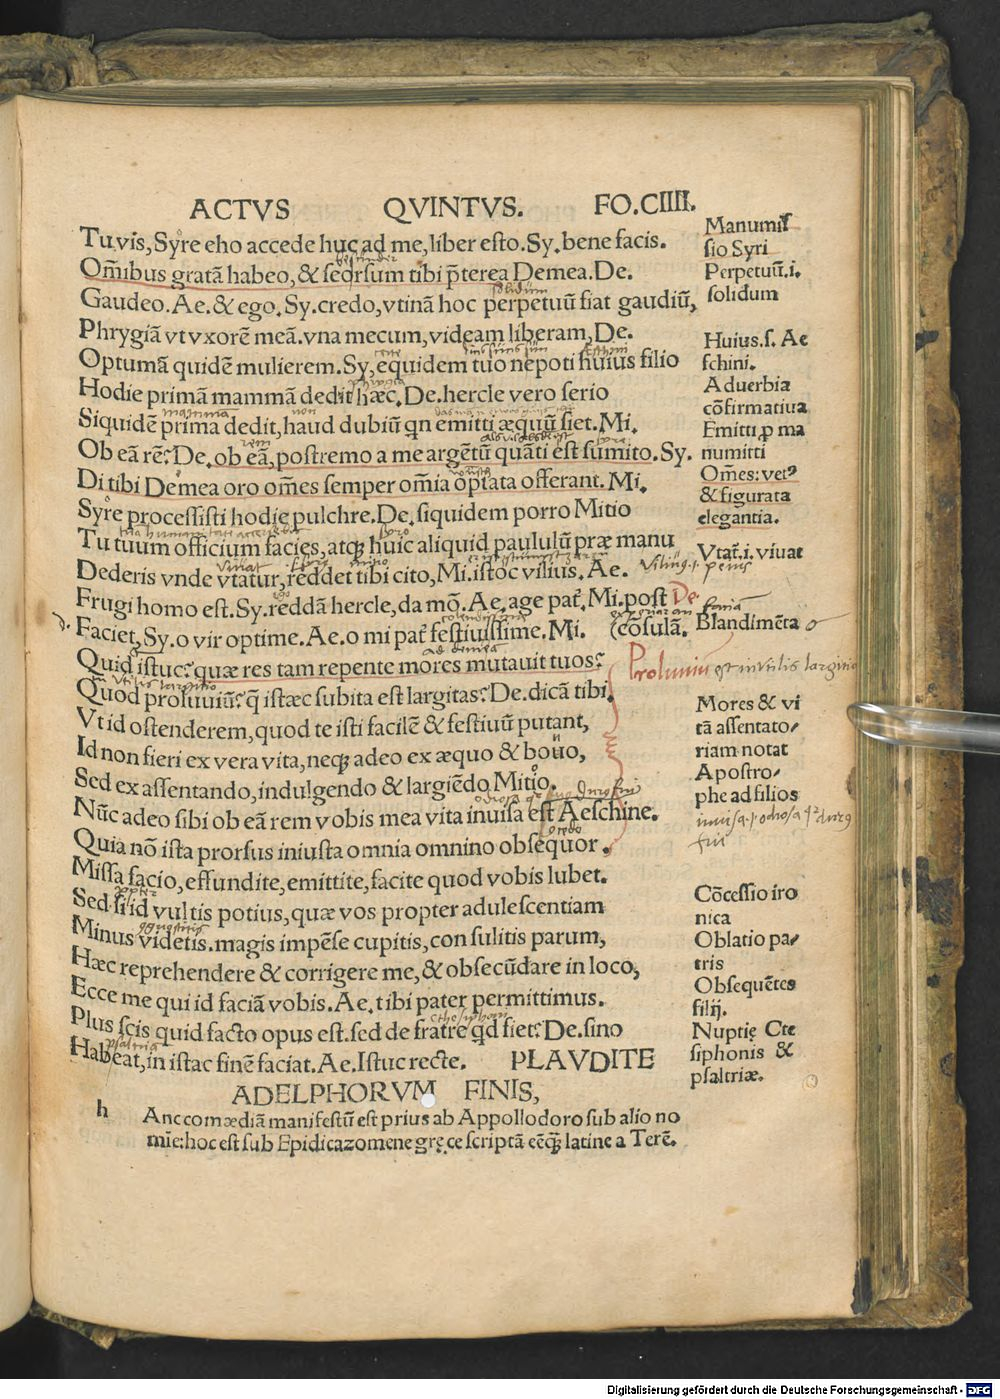 ACTVS QVINTVS. FO.CIIII.
Tu vis, Syre eho accede huc ad me, liber esto. Sy. bene facis.
Om̄ibus gratā habeo, & seorsum tibi p̄terea Demea. De.
Gaudeo. Ae. & ego. Sy. credo, vtinā hoc perpetuū fiat gaudiū,
Phrygiā vt vxorē meā. vna mecum, videam liberam, De.
Optumā quidē mulierem. Sy, equidem tuo nepoti huius filio
Hodie primā mammā dedit hæc. De. hercle vero serio
Siquidē prima dedit, haud dubiū qn emitti æquū siet. Mi.
Ob eā rē? De. ob eā, postremo a me argētū quāti est sumito. Sy.
Di tibi Demea oro om̄es semper om̄ia optata offerant. Mi.
Syre processisti hodie pulchre. De. siquidem porro Mitio
Tu tuum officium facies, atqꝫ huic aliquid paululū præ manu
Dederis vnde vtatur, reddet tibi cito, Mi. istoc vilius. Ae.
Frugi homo est. Sy. reddā hercle, da mō. Ae. age pat̄. Mi. post
Faciet, Sy. o vir optime. Ae. o mi pat̄ festiuissime. Mi. (cōsulā.
Quid istuc? quæ res tam repente mores mutauit tuos?
Quod proluuiū? q̄ istæc subita est largitas? De. dicā tibi.
Vt id ostenderem, quod te isti facilē & festiuū putant,
Id non fieri ex vera vita, neqꝫ adeo ex æquo & bono,
Sed ex assentando, indulgendo & largiēdo Mitio.
Nūc adeo sibi ob eā rem vobis mea vita inuisa est Aeschine.
Quia nō ista prorsus iniusta omnia omnino obsequor.
Missa facio, effundite, emittite, facite quod vobis lubet.
Sed si id vultis potius, quæ vos propter adulescentiam
Minus videtis. magis impēse cupitis, consulitis parum,
Hæc reprehendere & corrigere me, & obsecūdare in loco,
Ecce me qui id faciā vobis. Ae. tibi pater permittimus.
Plus scis quid facto opus est. sed de fratre qd fiet? De. sino
Habeat, in istac finē faciat. Ae. Istuc recte. PLAVDITE
ADELPHORVM FINIS,
h Anc comœdiā manifestū est prius ab Appollodoro sub alio no
mīe: hoc est sub Epidicazomene gręce scriptā eēqꝫ latine a Terē.
Manumis
sio Syri
Perpetuū. i.
solidum
Huius. s. Ae
schini.
Aduerbia
cōfirmatiua
Emitti ꝓ ma
numitti
Om̄es: vetꝰ
& figurata
elegantia.
Vtat̄. i. viuat
Blandimēta
Proluuiū est inutilis largitio
Mores & vi
tā assentato/
riam notat
Apostro/
phe ad filios
Cōcessio iro
nica
Oblatio pa/
tris
Obsequētes
filij.
Nuptię Cte
siphonis &
psaltriæ.
Digitalisierung gefördert durch die Deutsche Forschungsgemeinschaft - DFG